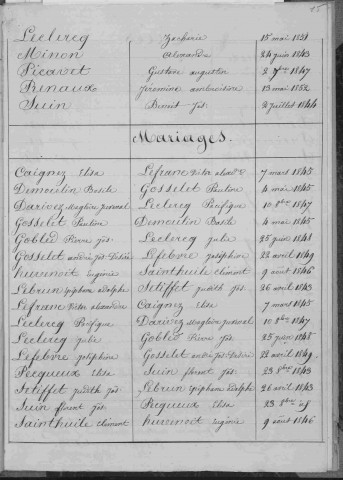 Leclercq Zacharie 15 mai 1851
Minon Alexandre 24 juin 1843
Picavet Gustave augustin 2 7bre 1847
Renaux Jeremine ambroisine 13 mai 1852
Suin Benoit Jph. 2 juillet 1844
Mariages.
Caignez Elisa Lefranc Victor alexandre 7 mars 1845
Demoulin Basile Gosselet Pauline 4 mai 1845
Darivez Magloire Leclercq Pacifique 10 8bre 1847
Gosselet Pauline Demoulin Basile 4 mai 1845
Goblet Pierre Jph. Leclercq julie 25 juin 1841
Gosselet andré Jph Leclercq Lefebvre joséphine 22 avril 1849
hurbenoit Eugénie Sainthuile Clément 9 août 1846
Lebrun Epiphane adolphe Istiffet judith Jph. 26 avril 1843
Lefranc Victor alexandre Caignez Elisa 7 mars 1845
Leclercq Pacifique Darivez Magloire 10 8bre 1847
Leclercq julie Goblet Pierre Jph.
Lefebvre joséphine Gosselet andré Jph 22 avril 1849
Pecqueux Elisa Suin florent Jph. 23 8bre 1843
Istiffet judith Jph. Lebrun Epiphane adolphe 26 avril 1843
Suin florent Jph. Pecqueux Elisa 23 8bre
Sainthuile Clément hurbenoit Eugénie 9 août 1846